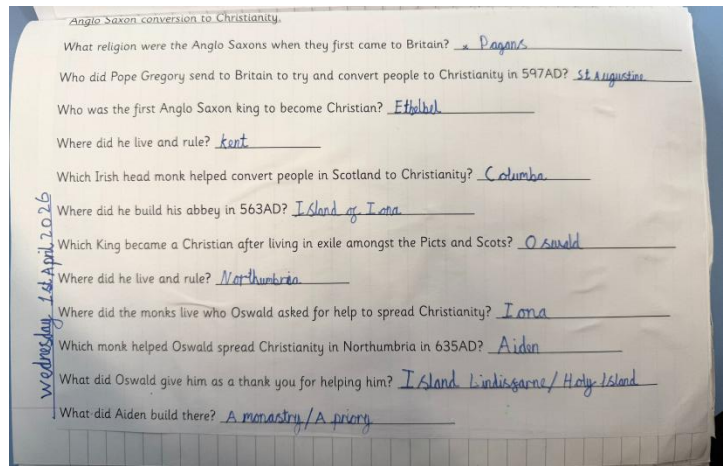 Anglo Saxon conversion to Christianity.
What religion were the Anglo Saxons when they first came to Britain? x Pagans
Who did Pope Gregory send to Britain to try and convert people to Christianity in 597AD? St Augustine
Who was the first Anglo Saxon king to become Christian? Ethelbel
Where did he live and rule? kent
Which Irish head monk helped convert people in Scotland to Christianity? Columba
Where did he build his abbey in 563AD? Island of Iona
Which King became a Christian after living in exile amongst the Picts and Scots? Oswald
Where did he live and rule? Northumbria
Where did the monks live who Oswald asked for help to spread Christianity? Iona
Which monk helped Oswald spread Christianity in Northumbria in 635AD? Aiden
What did Oswald give him as a thank you for helping him? Island Lindisfarne/ Holy Island
What did Aiden build there? A monastry/A priory
Wednesday 1st April 2026